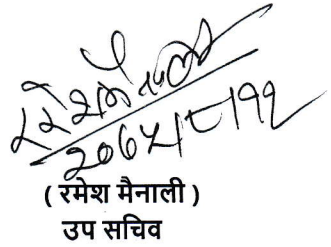 २०७५।८।११
( रमेश मैनाली )
उप सचिव